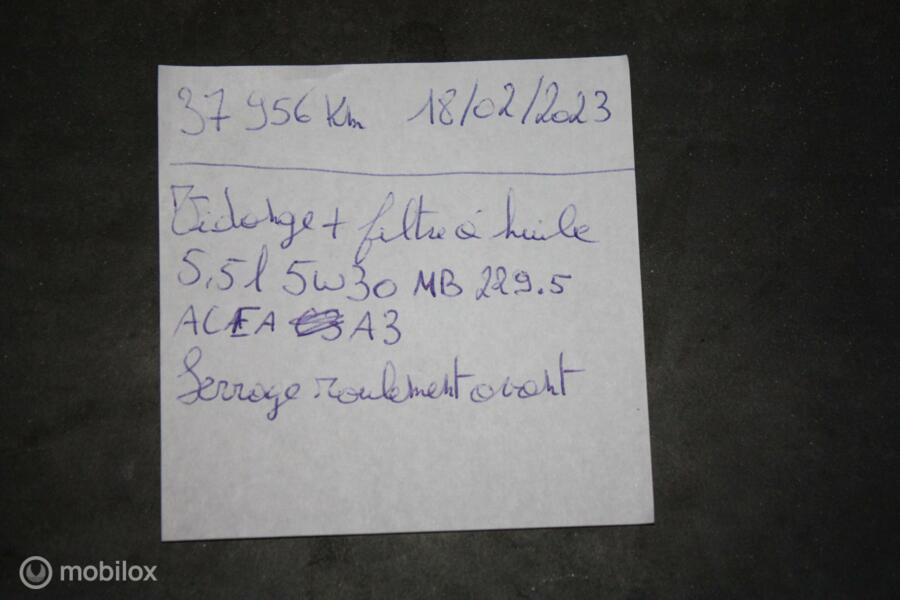 37 956 Km 18/02/2023
Vidange + filtre à huile
5,5l 5w30 MB 229.5
ACEA A3
Serrage roulement avant
mobilox